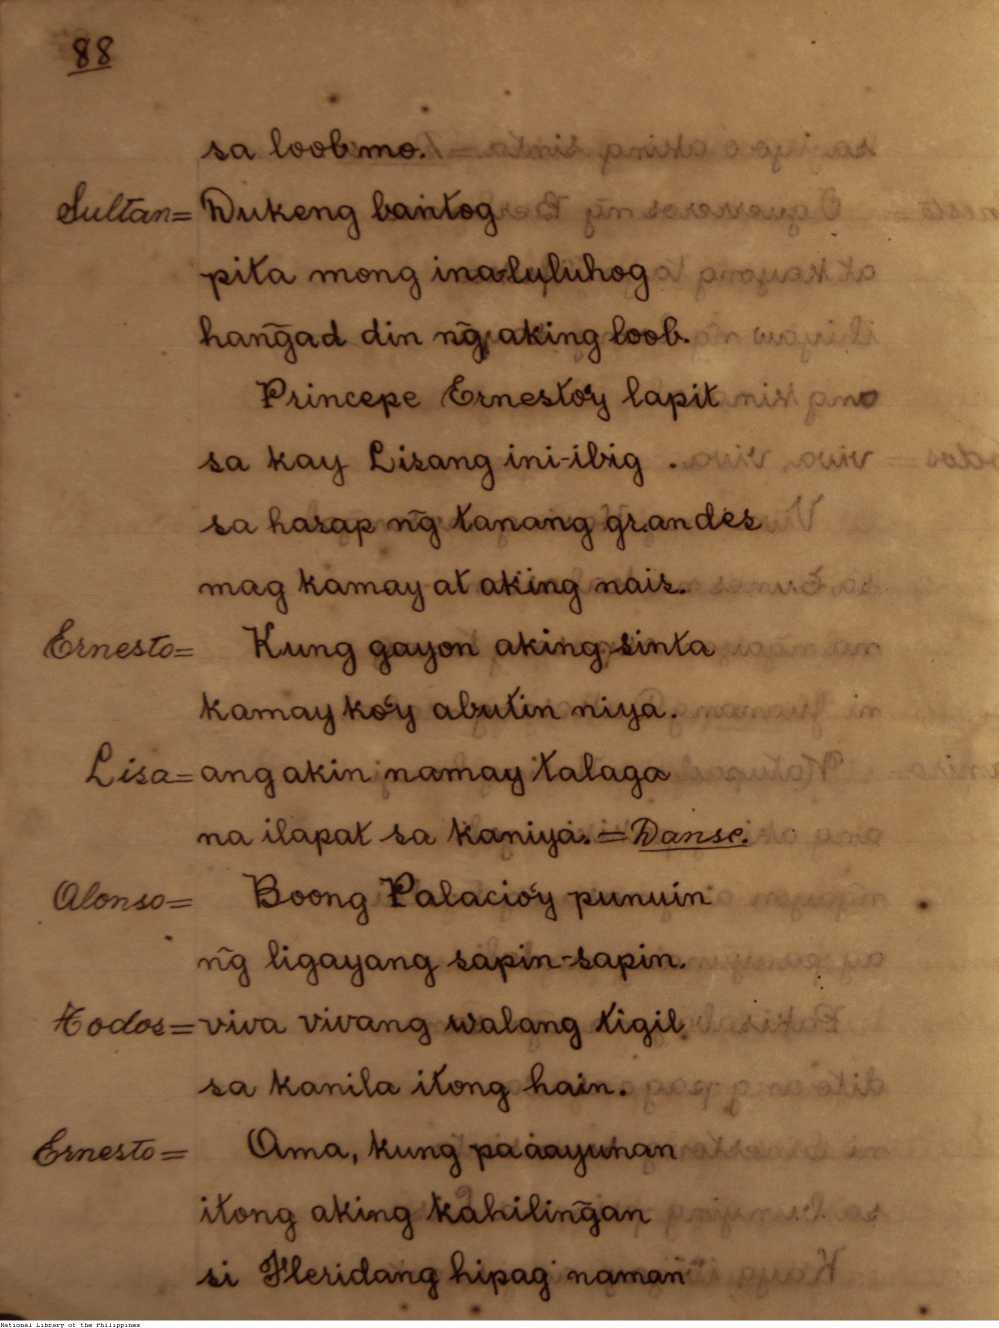 88
sa loob mo.
Sultan= Dukeng bantog
pita mong inaluluhog
hang̃ad din ng̃ aking loob.
Princepe Ernesto'y lapit
sa kay Lisang ini-ibig .
sa harap ng̃ tanang grandes
mag kamay at aking nais.
Ernesto= Kung gayon aking sinta
kamay ko'y abutin niya.
Lisa= ang akin namay talaga
na ilapat sa kaniya.=Danse.
Alonso= Boong Palacio'y punuin
ng̃ ligayang sapin-sapin.
Todos= viva vivang walang tigil
sa kanila itong hain.
Ernesto= Ama, kung pa aayunan
itong aking kahiling̃an
si Fleridang hipag naman
National Library of the Philippines